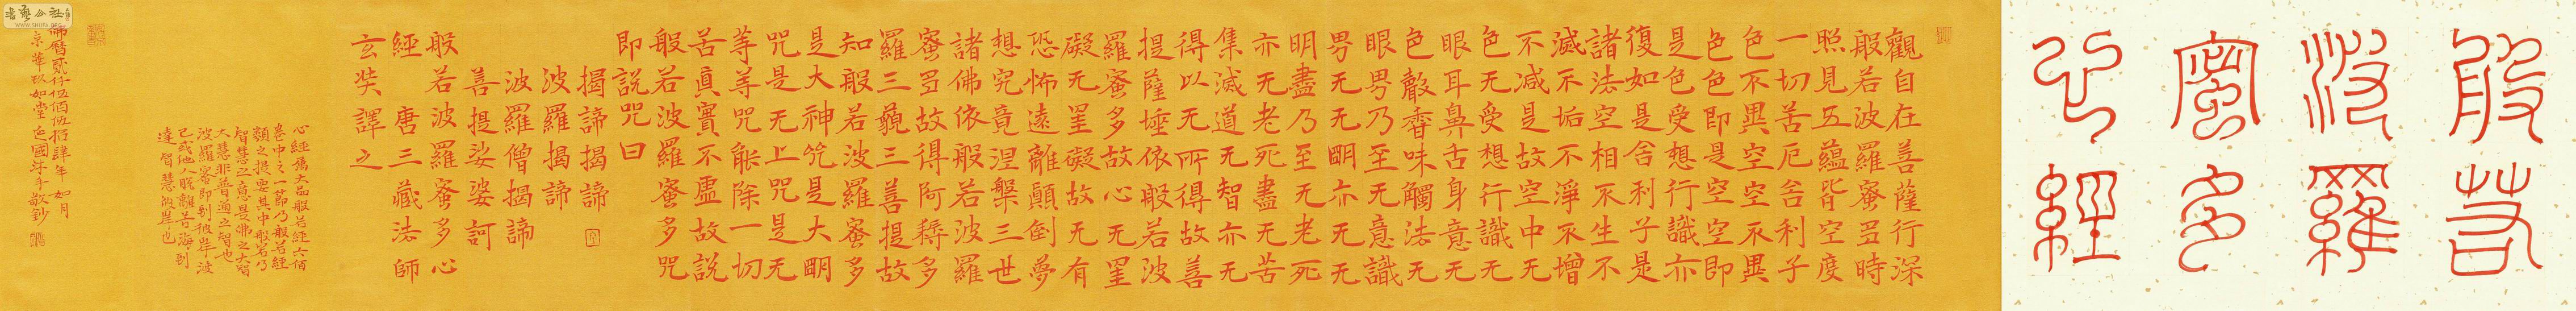 般若
波羅
蜜多
心經
觀自在菩薩行深
般若波羅蜜多時
照見五蘊皆空度
一切苦厄舍利子
色不異空空不異
色色即是空空即
是色受想行識亦
復如是舍利子是
諸法空相不生不
滅不垢不淨不增
不減是故空中无
色无受想行識无
眼耳鼻舌身意无
色聲香味觸法无
眼界乃至无意識
界无无明亦无无
明盡乃至无老死
亦无老死盡无苦
集滅道无智亦无
得以无所得故菩
提薩埵依般若波
羅蜜多故心无罣
礙无罣礙故无有
恐怖遠離顛倒夢
想究竟涅槃三世
諸佛依般若波羅
蜜多故得阿耨多
羅三藐三菩提故
知般若波羅蜜多
是大神咒是大明
咒是无上咒是无
等等咒能除一切
苦真實不虛故說
般若波羅蜜多咒
即說咒曰
揭諦揭諦
波羅揭諦
波羅僧揭諦
菩提娑婆訶
般若波羅蜜多心
經 唐三藏法師
玄奘譯之
心經爲大品般若經六佰
卷中之一節乃般若經
類之提要其中般若乃
智慧之意是佛之大智
大慧非普通之智也
波羅蜜即到彼岸波
己或他人脫離苦海到
達智慧彼岸也
佛曆貳仟伍佰伍拾肆年如月
京華玖如堂 國沐手敬鈔
WWW.SHUFA.ORG